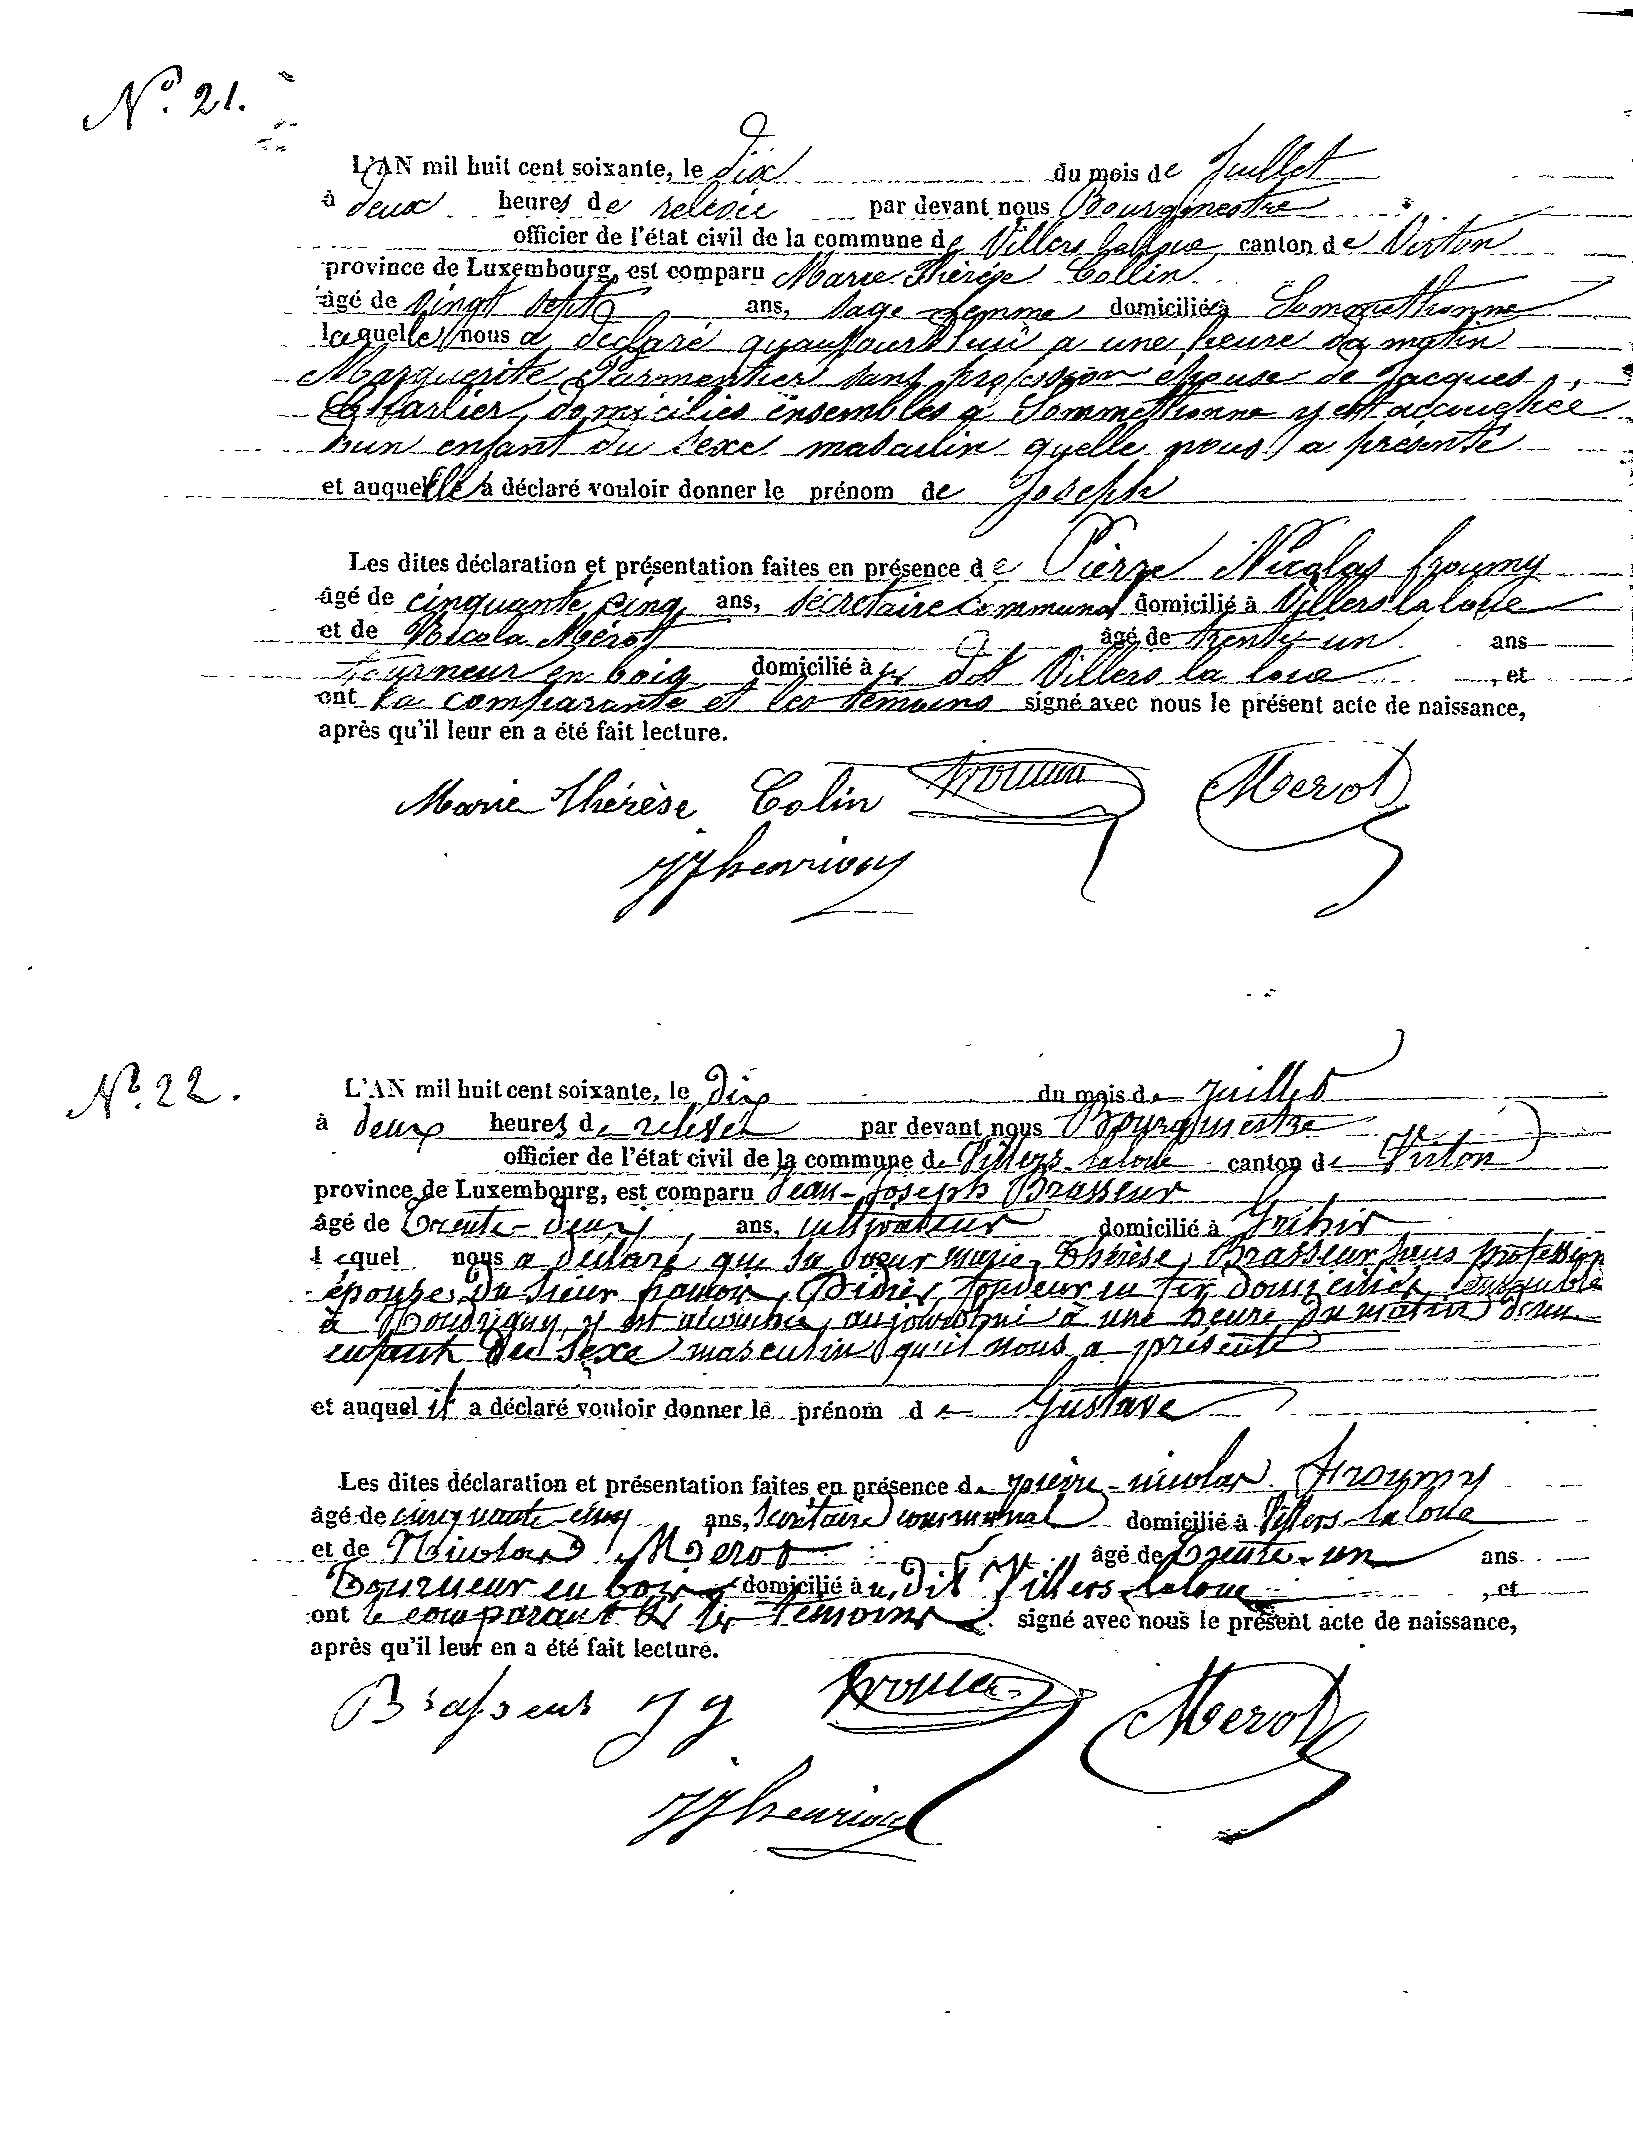 N° 21.
L'AN mil huit cent soixante, le dix du mois de Juillet
à deux heures de relevée par devant nous Bourgmestre
officier de l'état civil de la commune de Villers la loue canton de Virton
province de Luxembourg, est comparu Marie Thérèse Collin
âgé de vingt sept ans, sage femme domiciliée à Sommethonne
laquelle nous a déclaré qu'aujourd'hui a une heure du matin
Marguerite Parmentier sans profession épouse de Jacques
Charlier, domiciliés ensembles a Sommethonne y est accouchée
d'un enfant du sexe masculin quelle nous a présenté
et auquel elle a déclaré vouloir donner le prénom de Joseph
Les dites déclaration et présentation faites en présence de Pierre Nicolas froumy
âgé de cinquante cinq ans, secrétaire Communal domicilié à Villers la loue
et de Nicola Mérot âgé de trente un ans
tourneur en bois domicilié à u dit Villers la loue , et
ont la comparante et les témoins signé avec nous le présent acte de naissance,
après qu'il leur en a été fait lecture.
Marie Thérèse Colin froumy Merot
JJ henrion
N° 22.
L'AN mil huit cent soixante, le dix du mois de juillet
à deux heures de relevée par devant nous Bourgmestre
officier de l'état civil de la commune de Villers-laloue canton de Virton
province de Luxembourg, est comparu Jean-Joseph Brasseur
âgé de trente-deux, ans, cultivateur domicilié à
lequel nous a déclaré que sa soeur marie Thérèse, Brasseur sans profession
épouse du sieur Didier, fondeur en fer domiciliés ensemble
à y est accouchée, aujourd'hui à une heure du matin d'un
enfant du sexe masculin qu'il nous a présenté
et auquel il a déclaré vouloir donner le prénom de Gustave
Les dites déclaration et présentation faites en présence de pierre-nicolas froumy
âgé de cinquante-cinq ans, secrétaire communal domicilié à Villers-laloue
et de Nicolas Merot âgé de trente-un ans
Tourneur en bois domicilié à u, dit Villers-laloue , et
ont le comparant et les témoins signé avec nous le présent acte de naissance,
après qu'il leur en a été fait lecture.
Brasseur J J froumy Merot
JJ henrion